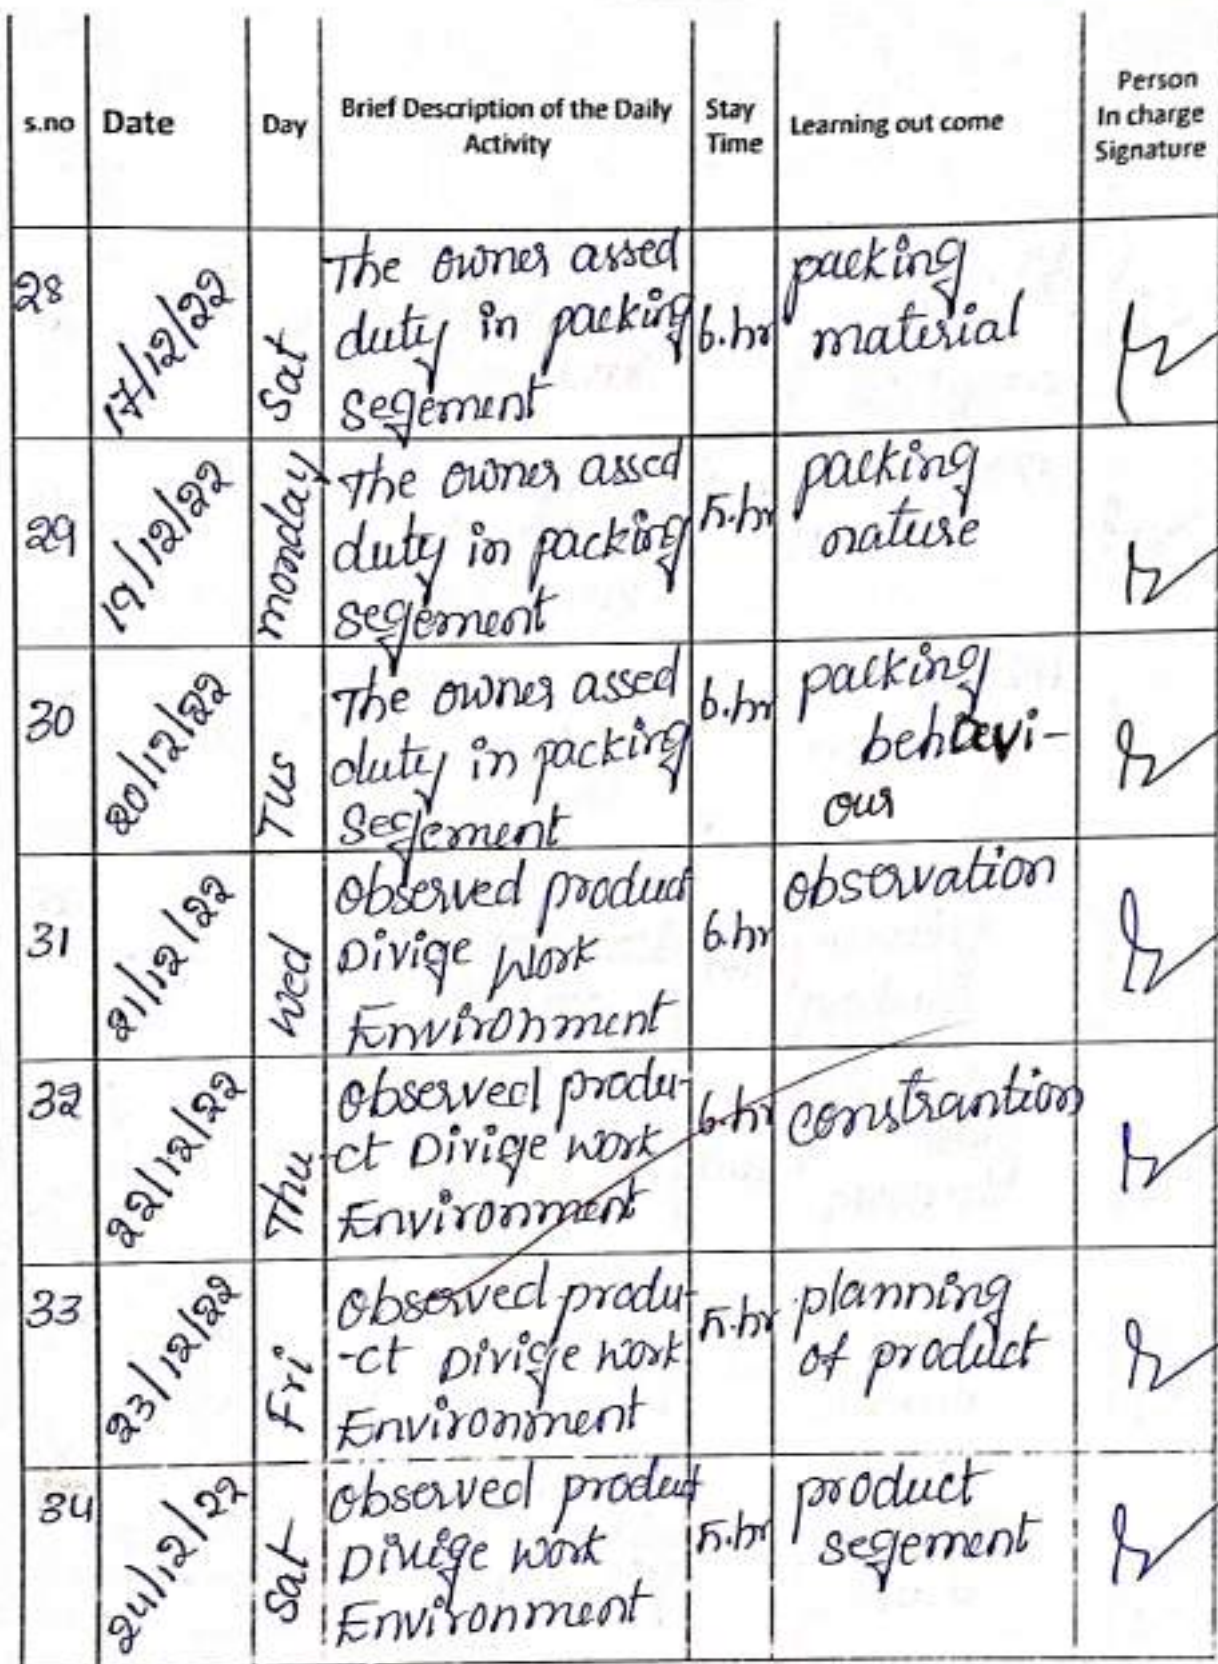 s.no Date Day Brief Description of the Daily Activity Stay Time Learning out come Person In charge Signature
28 17/12/22 Sat The owner assed duty in packing Segement 6.hr packing material
29 19/12/22 monday The owner assed duty in packing segement 5.hr packing nature
30 20/12/22 Tus The owner assed duty in packing Segement 6.hr packing behavi-our
31 21/12/22 wed Observed product Divige work Environment 6.hr observation
32 22/12/22 Thu Observed produ-ct Divige work Environment 6.hr constrantion
33 23/12/22 Fri Observed produ--ct Divige work Environment 5.hr planning of product
34 24/12/22 Sat Observed product Divige work Environment 5.hr product segement